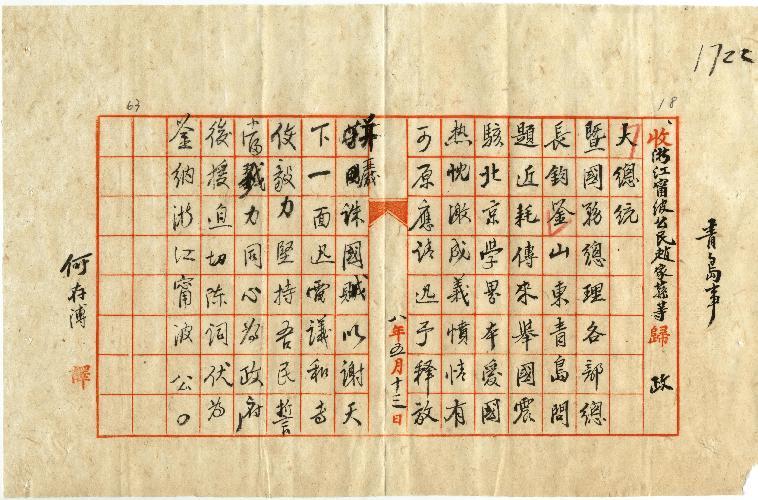 1722
18
63
青島事
收浙江甯波公民趙家蓀等歸政
大總統
暨國務總理各部總
長鈞鑒山東青島問
題近耗傳來舉國震
駭北京學界本愛國
熱忱激成義憤情有
可原應請迅予釋放
八年五月十三日
並國誅國賊以謝天
下一面迅電議和專
使毅力堅持吾民誓
當戮力同心為政府
後援迫切陳詞伏為
鑒納浙江甯波公
何存溥
譯